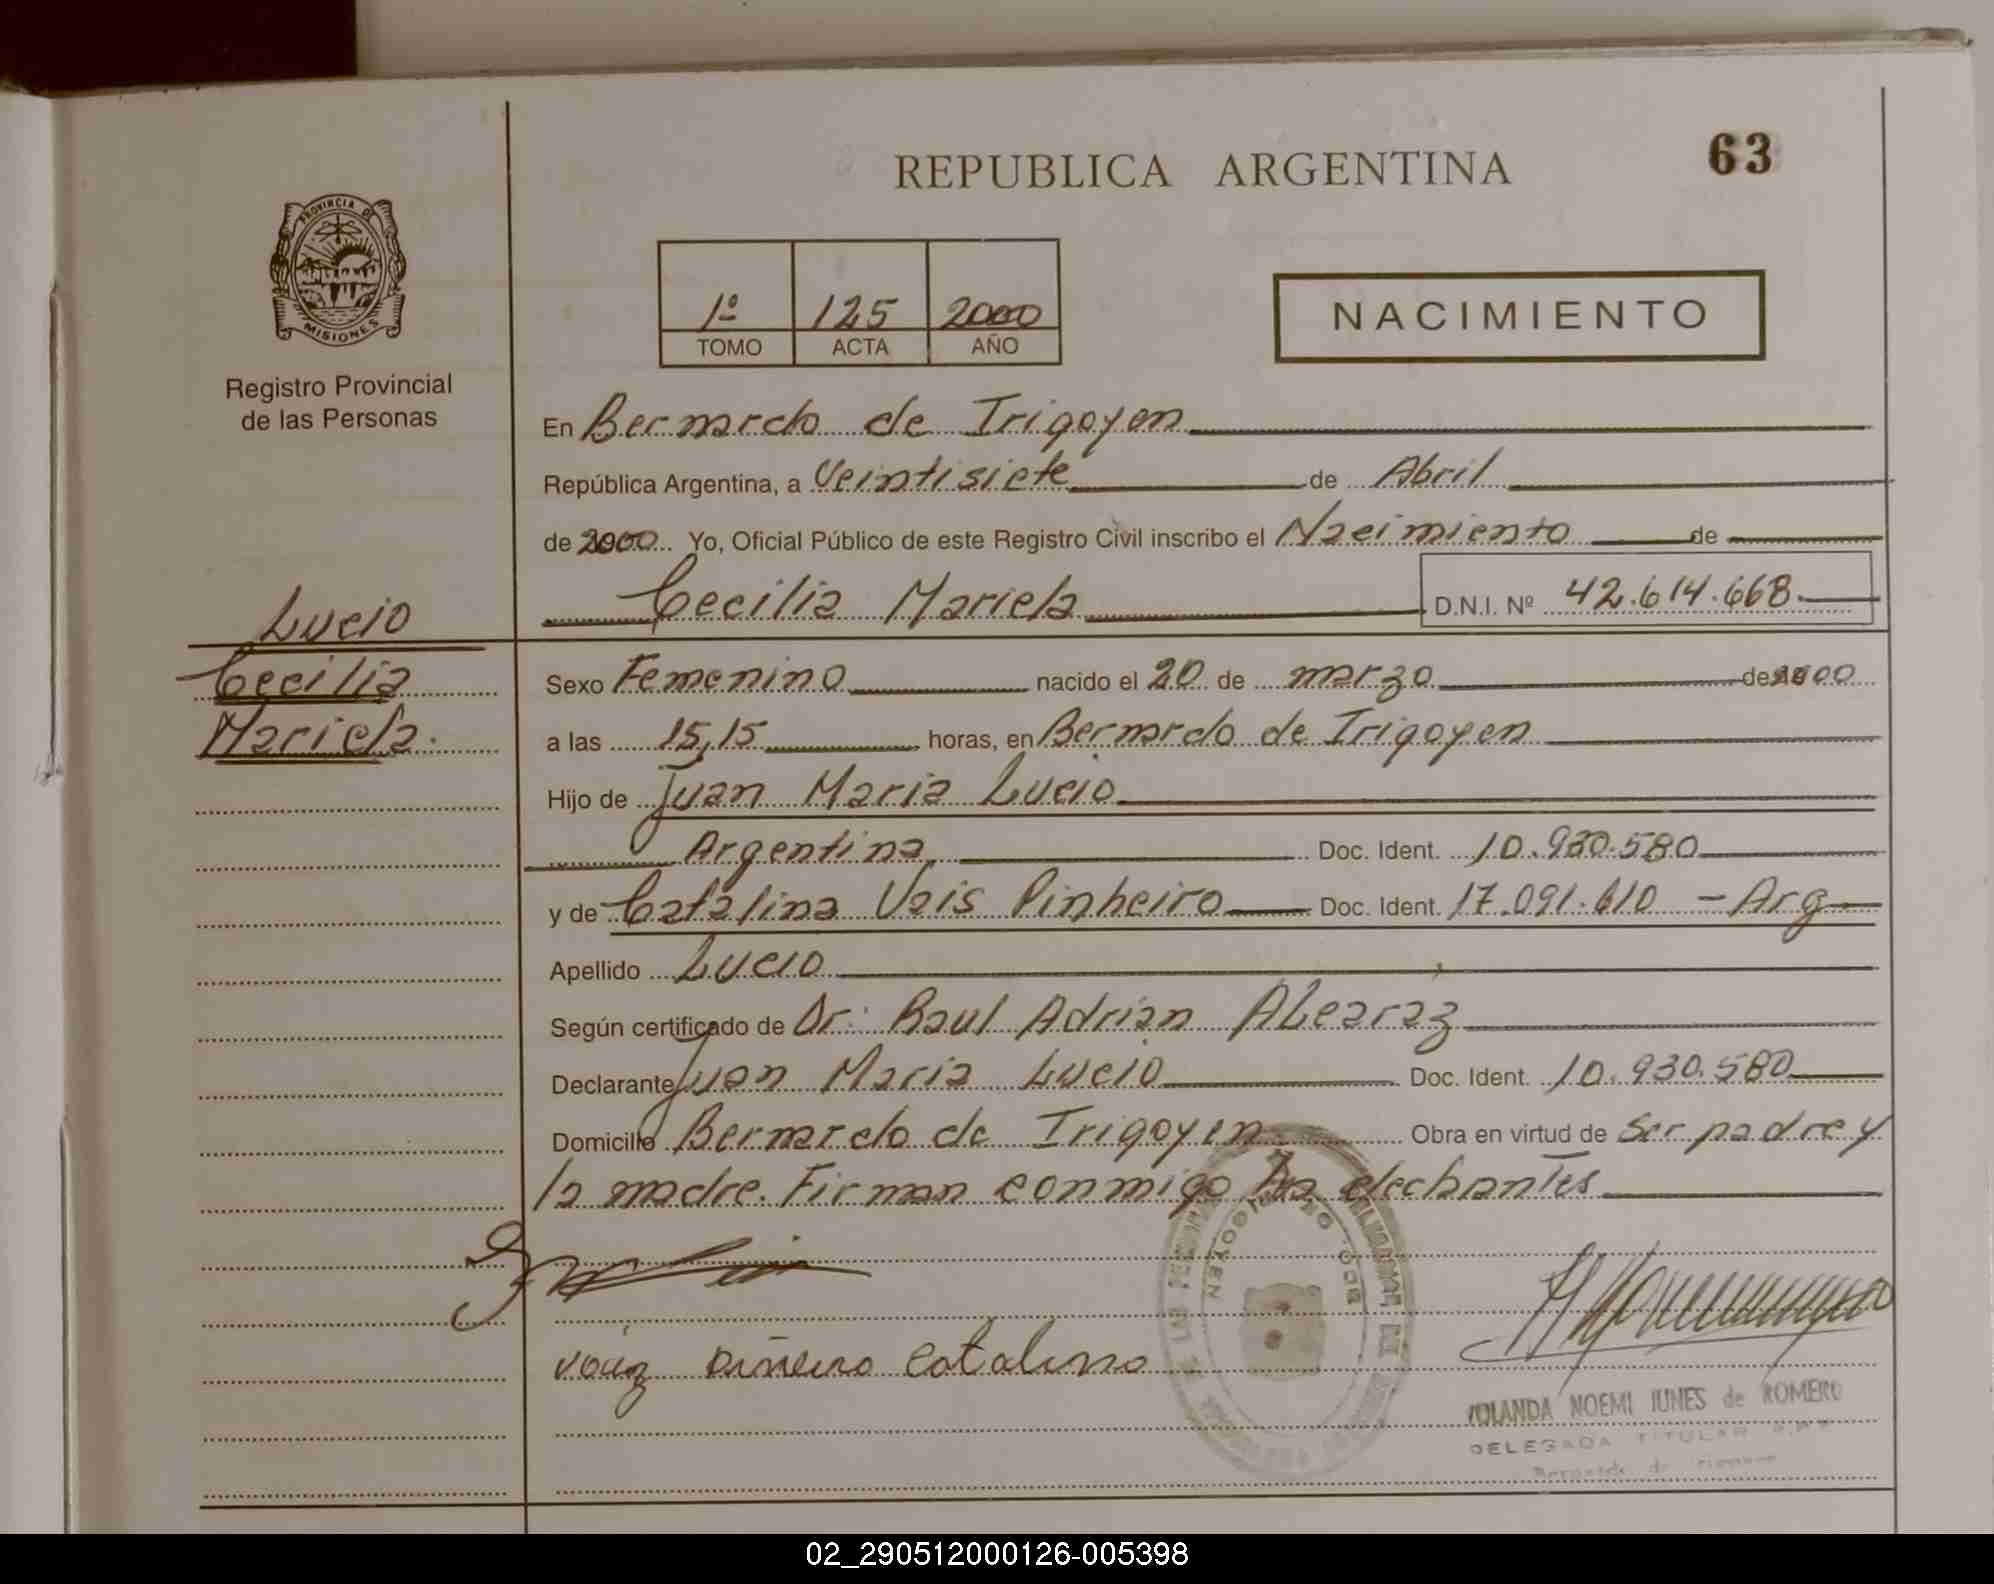 REPUBLICA ARGENTINA
63
PROVINCIA DE
MISIONES
Registro Provincial
de las Personas
1º 125 2000
TOMO ACTA AÑO
NACIMIENTO
En Bernardo de Irigoyen
República Argentina, a Veintisiete de Abril
de 2000 Yo, Oficial Público de este Registro Civil inscribo el Nacimiento de
Cecilia Mariela D.N.I. Nº 42.614.668.
Lucio
Cecilia
Mariela.
Sexo Femenino nacido el 20 de marzo de 2000
a las 15,15 horas, en Bernardo de Irigoyen
Hijo de Juan Maria Lucio
Argentina Doc. Ident. 10.930.580
y de Catalina Vais Pinheiro Doc. Ident. 17.091.610 - Arg
Apellido Lucio
Según certificado de Dr: Raul Adrian ALcaraz
Declarante Juan Maria Lucio Doc. Ident. 10.930.580
Domicilio Bernardo de Irigoyen Obra en virtud de ser padre y
la madre. Firman conmigo los declarantes
catalina
YOLANDA NOEMI IUNES de ROMERO
DELEGADA TITULAR
Bernardo de Irigoyen
02_290512000126-005398